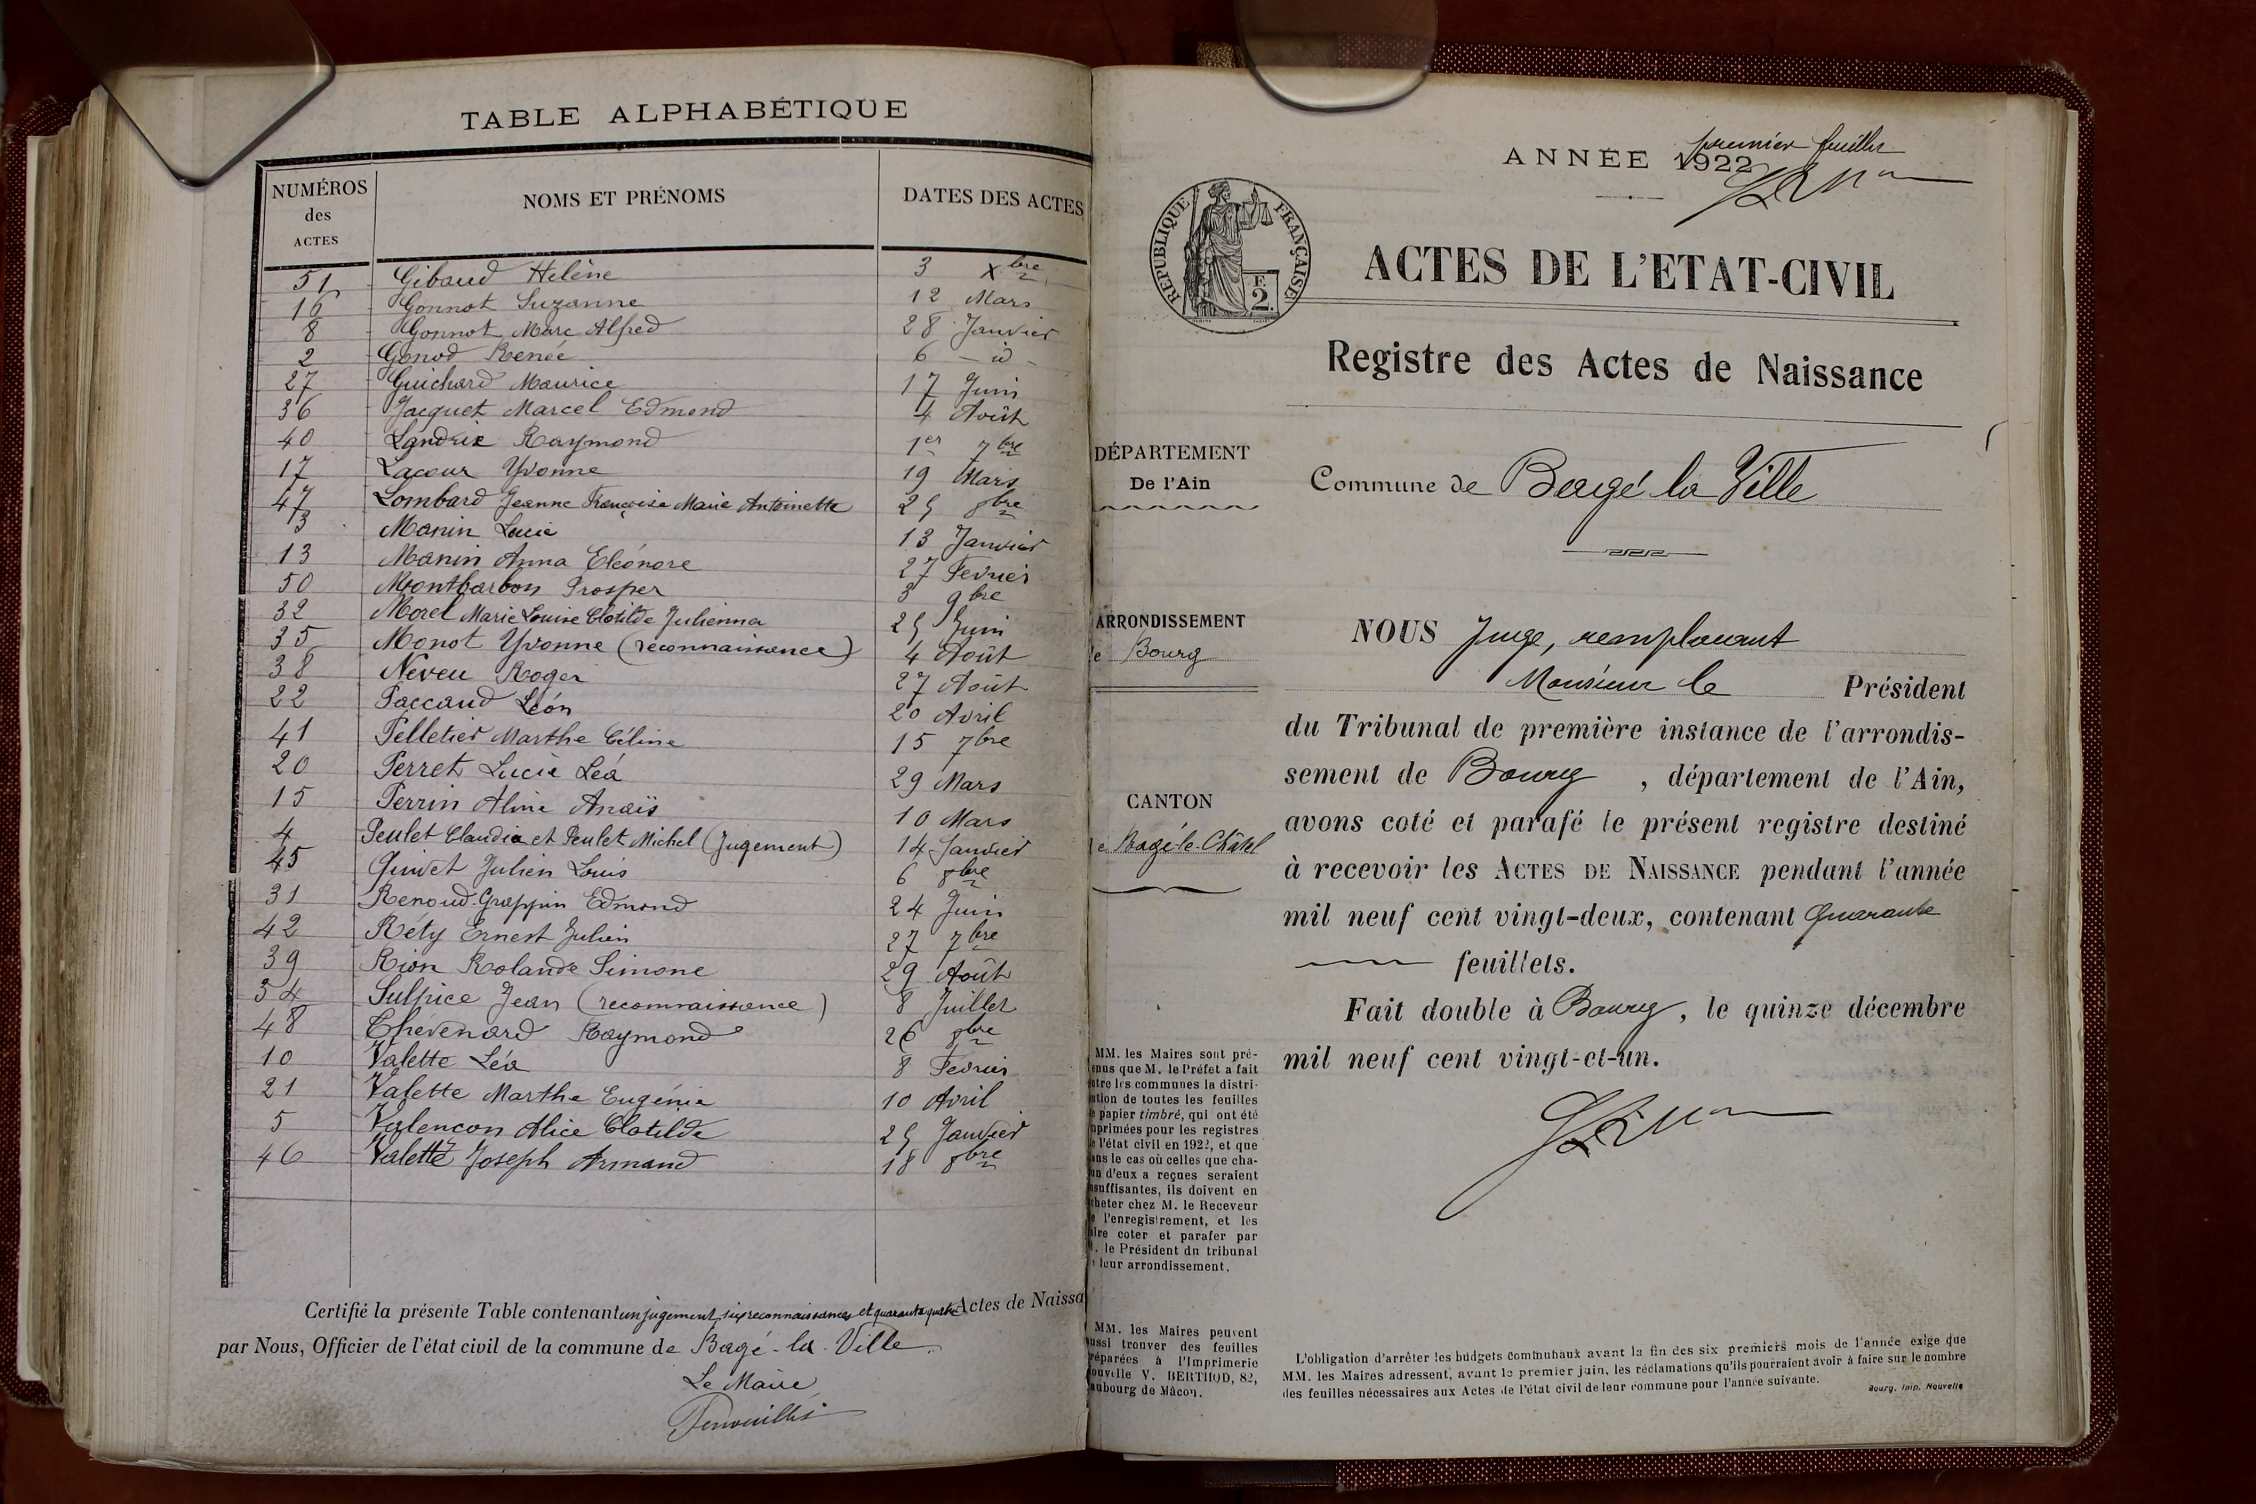 TABLE ALPHABÉTIQUE
NUMÉROS des ACTES NOMS ET PRÉNOMS DATES DES ACTES
51 Gibaud Helène 3 Xbre
16 Gonnot Suzanne 12 Mars
8 Gonnot Marc Alfred 28 Janvier
2 Gonod Renée 6 - id -
27 Guichard Maurice 17 Juin
36 Jacquet Marcel Edmond 4 Août
40 Landrix Raymond 1er 7bre
17 Lacour Yvonne 19 Mars
47 Lombard Jeanne Françoise Marie Antoinette 25 8bre
3 Manin Lucie 13 Janvier
13 Manin Anna Eléonore 27 Fevrier
50 Montbarbon Prosper 3 9bre
32 Morel Marie Louise Clotilde Julienna 25 Juin
35 Monot Yvonne (reconnaissance) 4 Août
38 Neveu Roger 27 Août
22 Paccaud Léon 20 Avril
41 Pelletier Marthe Céline 15 7bre
20 Perret Lucie Léa 29 Mars
15 Perrin Aline Anaïs 10 Mars
4 Peulet Claudia et Peulet Michel (Jugement) 14 Janvier
45 Quivet Julien Louis 6 8bre
31 Renoud-Grappin Edmond 24 Juin
42 Réty Ernest Julien 27 7bre
39 Rion Rolande Simone 29 Août
34 Sulpice Jean (reconnaissance) 8 Juillet
48 Thévenard Raymond 26 8bre
10 Valette Léa 8 Fevrier
21 Valette Marthe Eugénie 10 Avril
5 Valençon Alice Clotilde 25 Janvier
46 Valette Joseph Armand 18 8bre
Certifié la présente Table contenant un jugement, six reconnaissances et quarante quatre Actes de Naissa
par Nous, Officier de l'état civil de la commune de Bagé-la-Ville.
Le Maire
premier feuillet
ANNÉE 1922
RÉPUBLIQUE FRANÇAISE
F. 2
ACTES DE L'ETAT-CIVIL
Registre des Actes de Naissance
DÉPARTEMENT
De l'Ain
Commune de Bagé la Ville
ARRONDISSEMENT
e Bourg
CANTON
e Bagé-le-Châtel
NOUS Juge, remplaçant
Monsieur le Président
du Tribunal de première instance de l'arrondis-
sement de Bourg, département de l'Ain,
avons coté et parafé le présent registre destiné
à recevoir les ACTES DE NAISSANCE pendant l'année
mil neuf cent vingt-deux, contenant Quarante
feuillets.
Fait double à Bourg, le quinze décembre
mil neuf cent vingt-et-un.
MM. les Maires sont pré-
enus que M. le Préfet a fait
ntre les communes la distri-
ution de toutes les feuilles
e papier timbré, qui ont été
mprimées pour les registres
e l'état civil en 1922, et que
ans le cas où celles que cha-
un d'eux a reçues seraient
nsuffisantes, ils doivent en
cheter chez M. le Receveur
e l'enregistrement, et les
aire coter et parafer par
. le Président du tribunal
e leur arrondissement.
MM. les Maires peuvent
ussi trouver des feuilles
réparées à l'Imprimerie
ouvelle V. BERTHOD, 82,
aubourg de Mâcon.
L'obligation d'arrêter les budgets communaux avant la fin des six premiers mois de l'année exige que
MM. les Maires adressent, avant le premier juin, les réclamations qu'ils pourraient avoir à faire sur le nombre
des feuilles nécessaires aux Actes de l'état civil de leur commune pour l'année suivante.
Bourg, Imp. Nouvelle